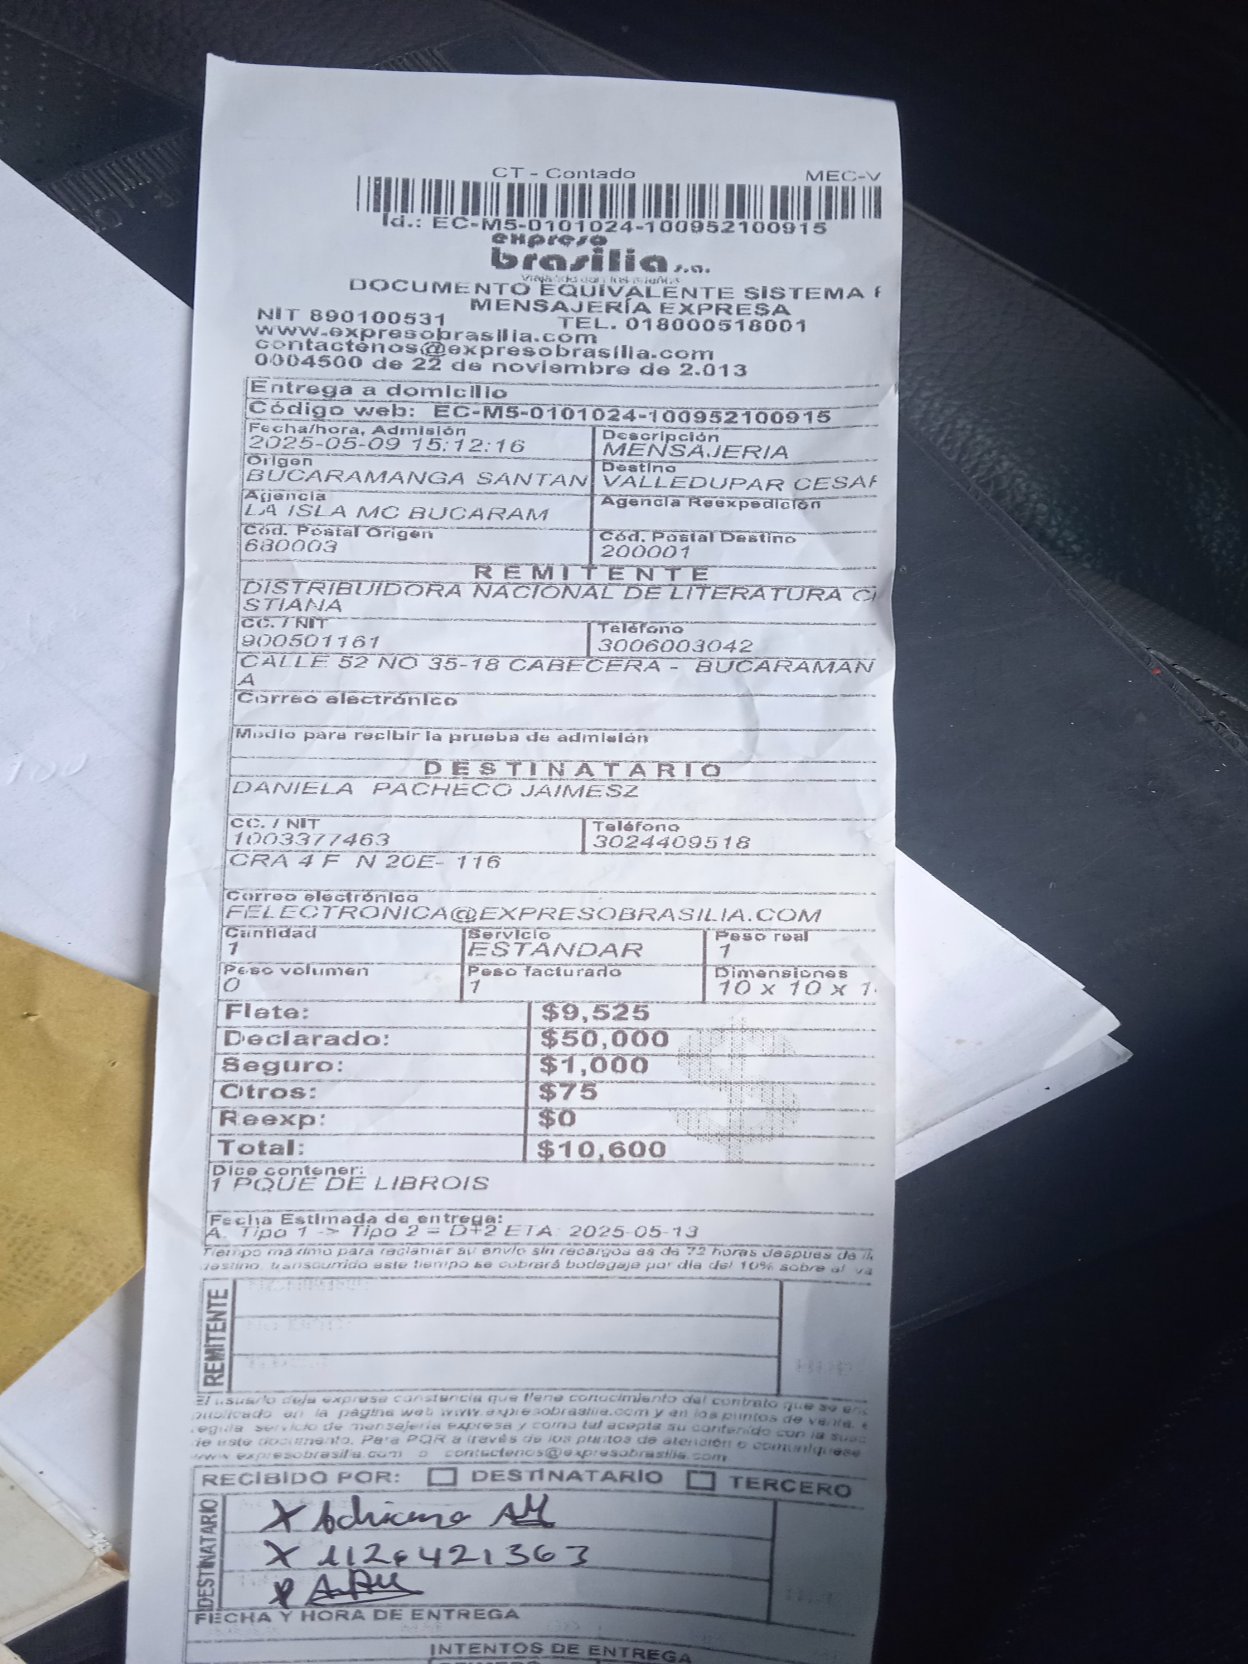 CT - Contado MEC-V
Id.: EC-M5-0101024-100952100915
expreso
brasilia s.a.
DOCUMENTO EQUIVALENTE SISTEMA
MENSAJERÍA EXPRESA
NIT 890100531 TEL. 018000518001
www.expresobrasilia.com
contactenos@expresobrasilia.com
0004500 de 22 de noviembre de 2.013
Entrega a domicilio
Código web: EC-M5-0101024-100952100915
Fecha/hora, Admisión Descripción
2025-05-09 15:12:16 MENSAJERIA
Origen Destino
BUCARAMANGA SANTAN VALLEDUPAR CESAR
Agencia Agencia Reexpedición
LA ISLA MC BUCARAM
Cód. Postal Origen Cód. Postal Destino
680003 200001
REMITENTE
DISTRIBUIDORA NACIONAL DE LITERATURA C
STIANA
CC. / NIT Teléfono
900501161 3006003042
CALLE 52 NO 35-18 CABECERA - BUCARAMAN
A
Correo electrónico
Medio para recibir la prueba de admisión
DESTINATARIO
DANIELA PACHECO JAIMESZ
CC. / NIT Teléfono
1003377463 3024409518
CRA 4 F N 20E- 116
Correo electrónico
FELECTRONICA@EXPRESOBRASILIA.COM
Cantidad Servicio Peso real
1 ESTANDAR 1
Peso volumen Peso facturado Dimensiones
0 1 10 x 10 x 1
Flete: $9,525
Declarado: $50,000
Seguro: $1,000
Otros: $75
Reexp: $0
Total: $10,600
Dice contener:
1 PQUE DE LIBROIS
Fecha Estimada de entrega:
A. Tipo 1 -> Tipo 2 = D+2 ETA: 2025-05-13
Tiempo máximo para reclamar su envío sin recargos es de 72 horas despues de
destino, transcurrido este tiempo se cobrará bodegaje por dia del 10% sobre el va
REMITENTE
El usuario deja expresa constancia que tiene conocimiento del contrato que se en
publicado en la página web www.expresobrasilia.com y en los puntos de venta,
regula servicio de mensajería expresa y como tal acepta su contenido con la sus
de este documento. Para PQR a través de los puntos de atención o comuníquese
www.expresobrasilia.com o contactenos@expresobrasilia.com
RECIBIDO POR: DESTINATARIO TERCERO
DESTINATARIO
X Adriana AM
X
X
FECHA Y HORA DE ENTREGA
INTENTOS DE ENTREGA